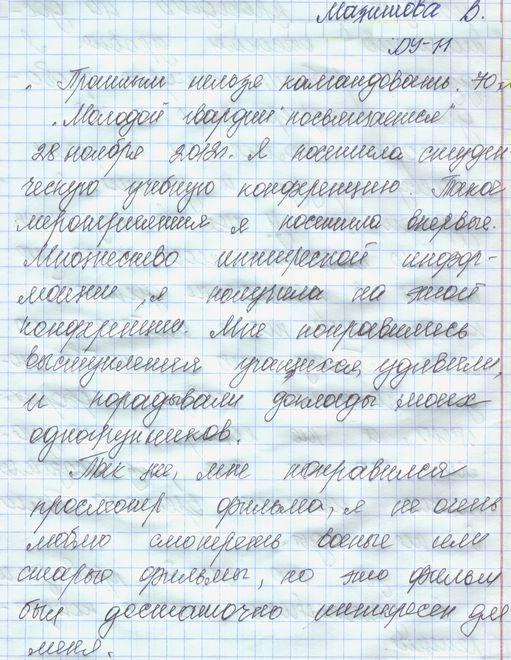 Мазитова В.
ДУ-11
„Прошлым нельзя командовать. 70
„Молодой гвардии" посвящается"
28 ноября 2012г. я посетила студен
ческую учебную конференцию. Такое
мероприятия я посетила впервые.
Множество интересной инфор-
мации, я получила на этой
конференции. Мне понравилось
выступления учащихся, удивили,
и порадывали доклады моих
одногрупников.
Так же, мне понравился
просмотр фильма, я не очень
люблю смотереть военые или
старые фильмы, но это фильм
был достаточно интиресен для
меня.